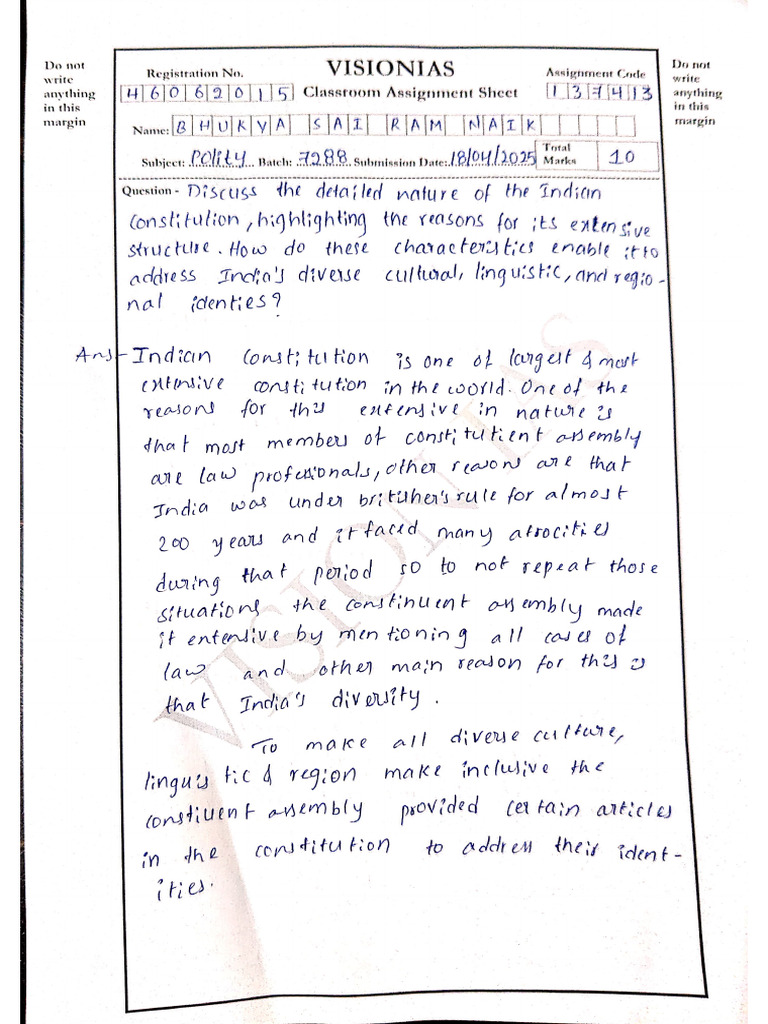 Do not
write
anything
in this
margin
VISIONIAS
Registration No.
Classroom Assignment Sheet
Assignment Code
46062015
137413
Do not
write
anything
in this
margin
Name: BHUKYA SAI RAM NAIK
Subject: Polity Batch: 7288 Submission Date: 18/04/2025 Total Marks 10
Question - Discuss the detailed nature of the Indian
constitution, highlighting the reasons for its extensive
structure. How do these characteristics enable it to
address India's diverse cultural, linguistic, and regio-
nal identies?
Ans - Indian constitution is one of largest & most
extensive constitution in the world. One of the
reasons for this extensive in nature is
that most members of constitutient assembly
are law professionals, other reasons are that
India was under britisher's rule for almost
200 years and it faced many atrocities
during that period so to not repeat those
situations the constinuent assembly made
it extensive by mentioning all cases of
law and other main reason for this is
that India's diversity.
To make all diverse culture,
linguistic & region make inclusive the
constiuent assembly provided certain articles
in the constitution to address their ident-
ities.
VISION IAS